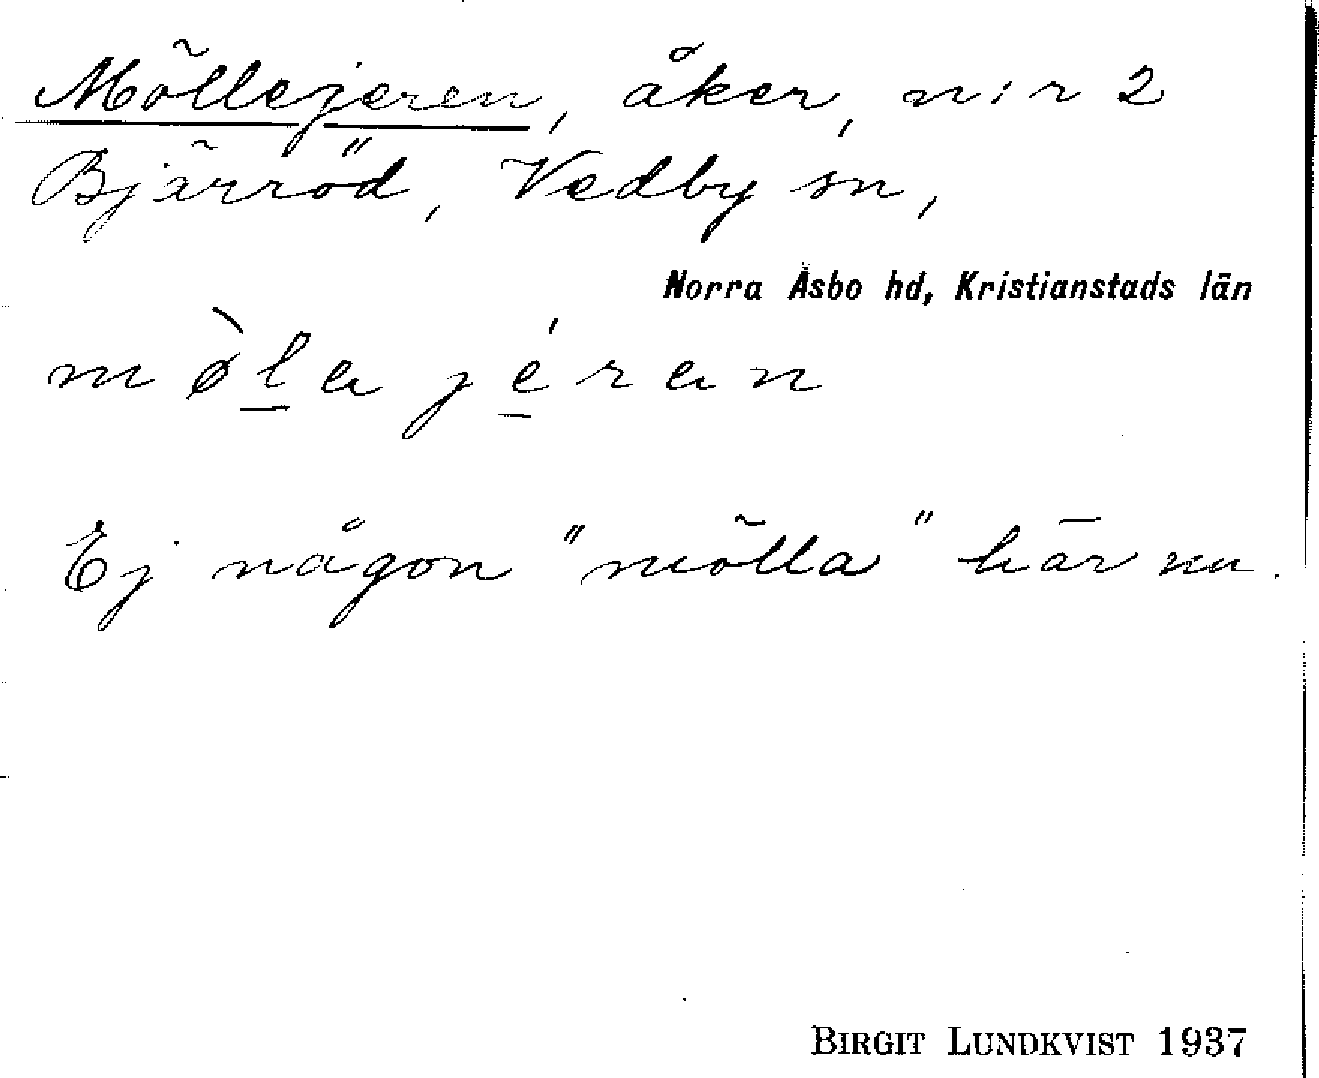 Möllejeren, åker, n:r 2
Bjärröd, Vedby sn,
Norra Åsbo hd, Kristianstads län
mø̀la jéran
Ej någon "mölla" här nu.
BIRGIT LUNDKVIST 1937